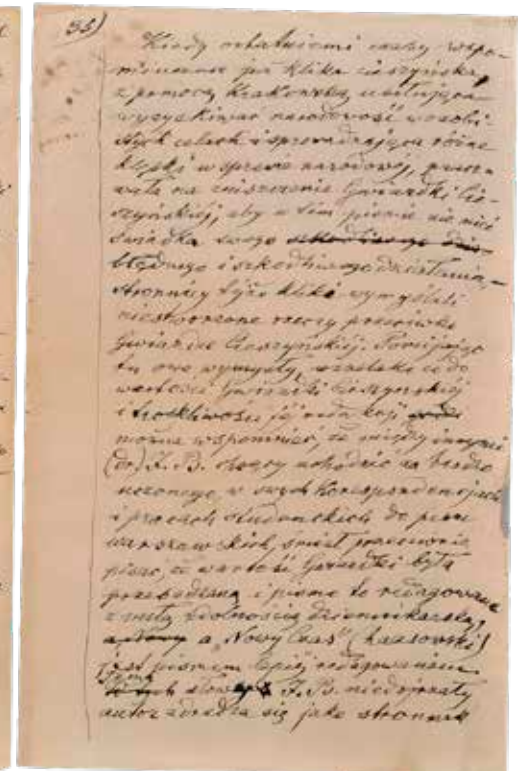 35)
Kiedy ostatniemi czasy wspo-
mniana już klika cieszyńska,
z pomocą krakowską usiłująca
wyzyskiwać narodowość w osobi-
stych celach i sprowadzająca różne
klęski w sprawie narodowéj,
wała na zniszczenie Gwiazdki Cie-
szyńskiéj, aby w tém piśmie nie mieć
świadka swego szkodliwego dzia-
błędnego i szkodliwego działania,
stronnicy téjże kliki wymyślali
niestworzone rzeczy przeciwko
Gwiazdce Cieszyńskiéj. Pomijając
tu owe wymysły, wszelako co do
wartości Gwiazdki Cieszyńskiéj
i troskliwości jéj redakcyi
można wspomnieć, że między innymi
(dr) J. B. chcący uchodzić za bardzo
uczonego, w swych korespondencjach
i pracach studenckich do pism
warszawskich, śmiał
pisać, że wartość Gwiazdki była
przesadzoną i pismo to redagowane
z małą zdolnością dziennikarską,
a "Nowy Czas" (haasowski)
jest pismem lepiéj redagowaném.
Temi
słowy J. B. niedojrzały
autor zdradza się jako stronnik